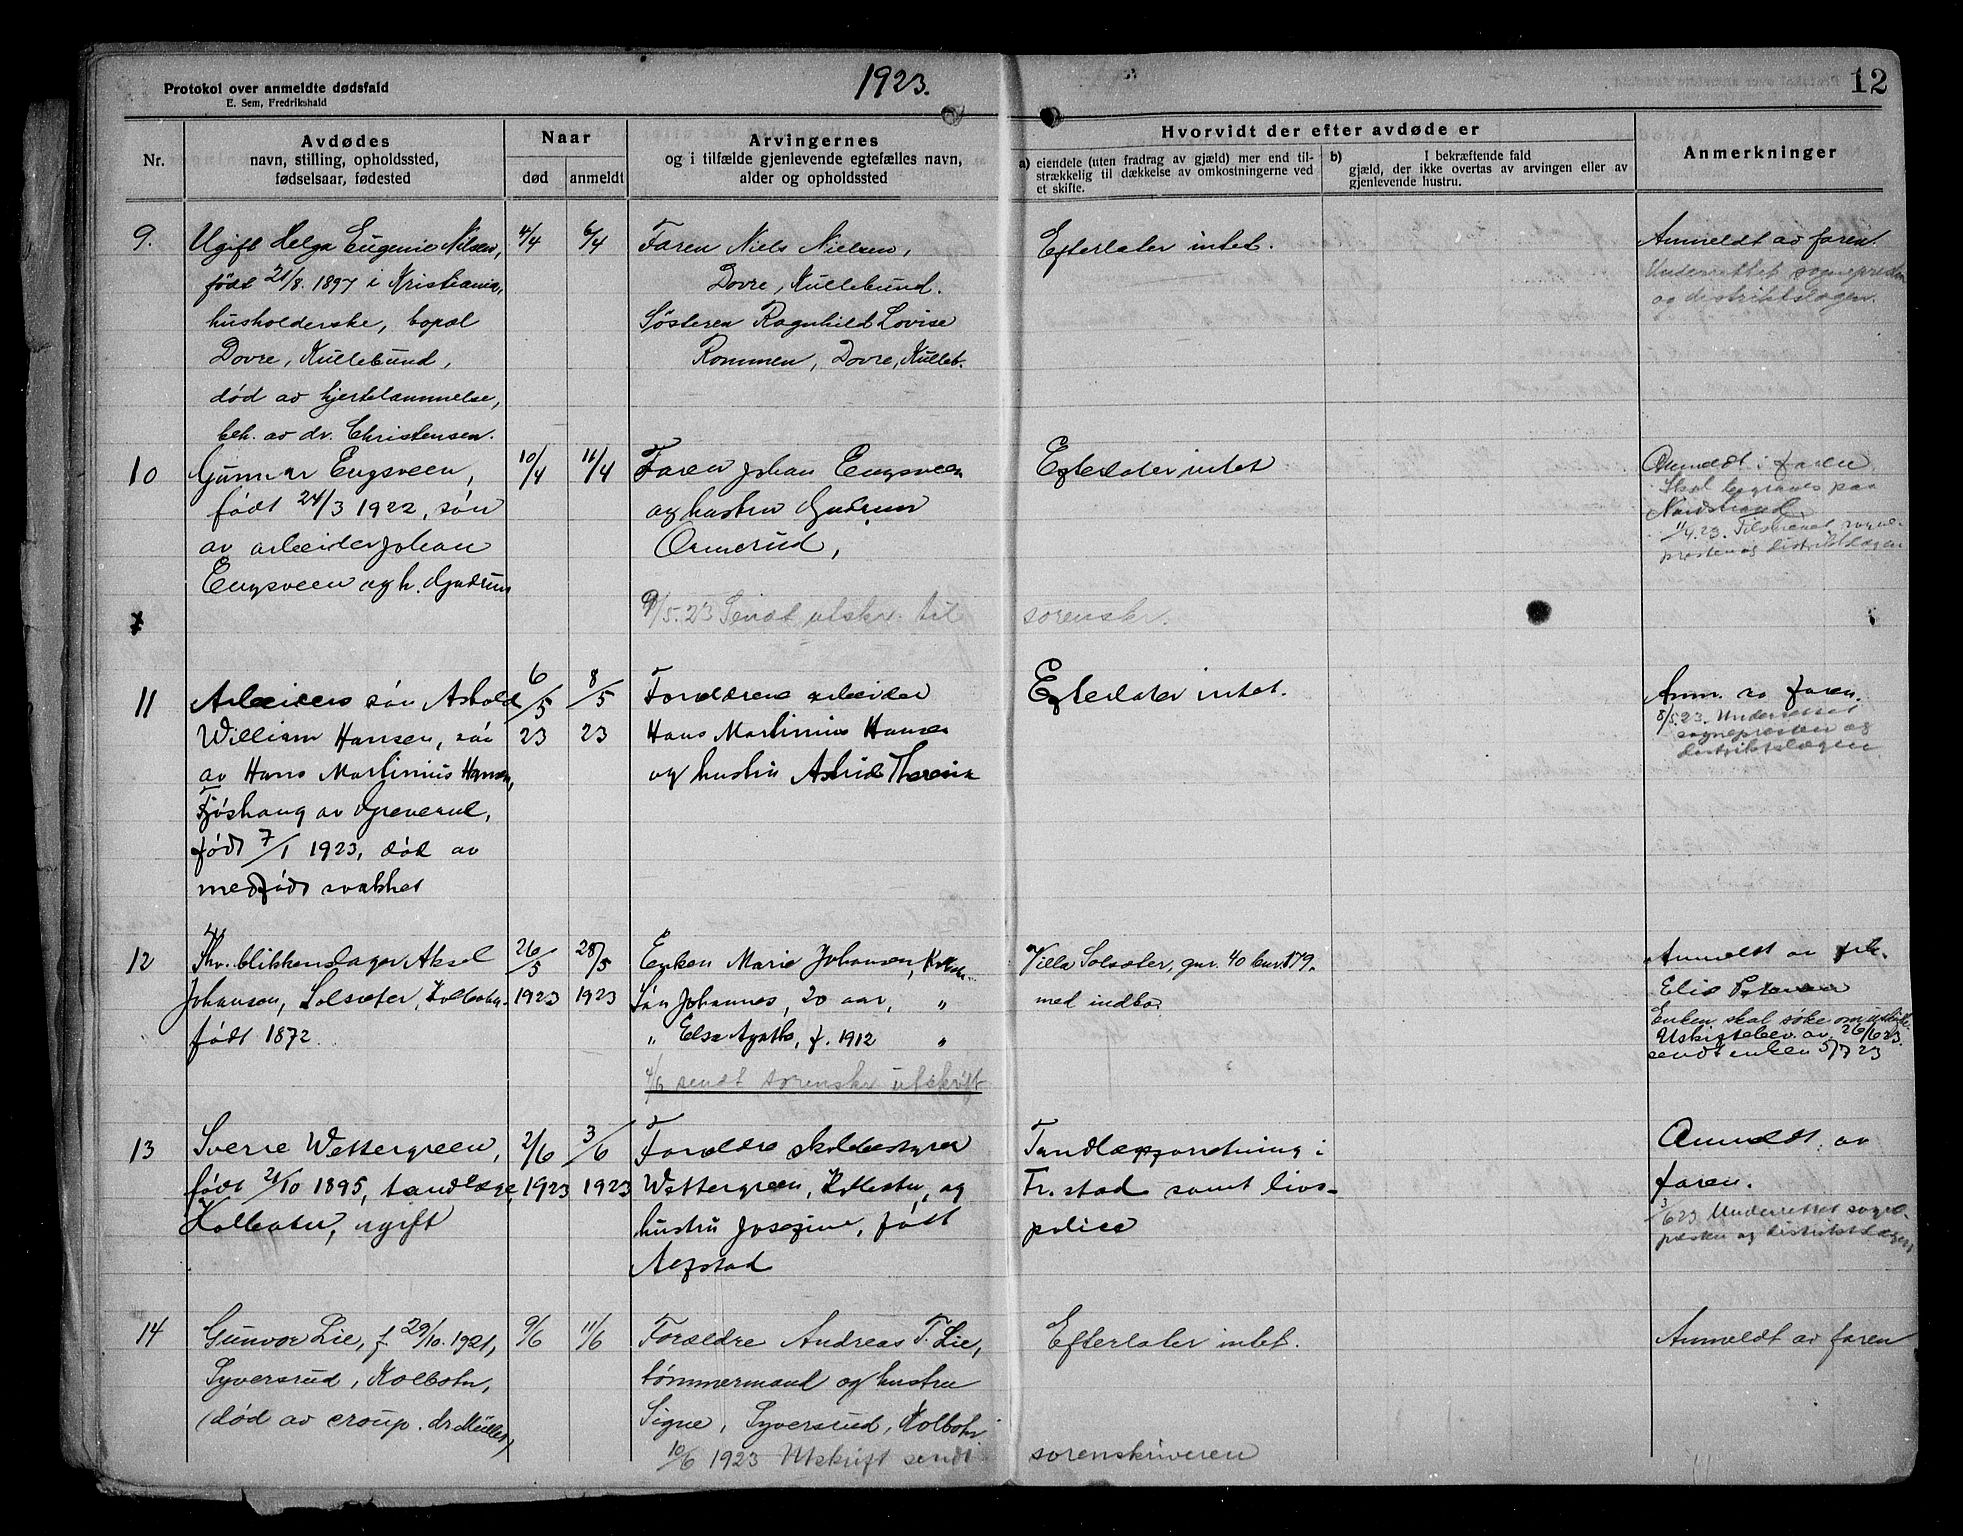 1923.
12
Protokol over anmeldte dødsfald
E. Sem, Fredrikshald
Nr.
Avdødes
navn, stilling, opholdssted,
fødselsaar, fødested
Naar
død
anmeldt
Arvingernes
og i tilfælde gjenlevende egtefælles navn,
alder og opholdssted
Hvorvidt der efter avdøde er
a) eiendele (uten fradrag av gjæld) mer end til-
strækkelig til dækkelse av omkostningerne ved
et skifte.
b) I bekræftende fald
gjæld, der ikke overtas av arvingen eller av
gjenlevende hustru.
Anmerkninger
9.
Ugift Helga Eugenie Nilsen,
født 21/8. 1897 i Kristiania,
husholderske, bopæl
Dovre, Kullebund,
død av hjertelammelse,
beh. av dr. Christensen.
4/4
6/4
Faren Niels Nielsen,
Dovre, Kullebund.
Søsteren Ragnhild Lovise
Rommen, Dovre, Kulleb.
Efterlater intet.
Anmeldt av faren.
Underrettet sognepresten
og distriktslægen.
10
Gunnar Engsveen,
født 24/3 1922, søn
av arbeider Johan
Engsveen og h. Gudrun
10/4
11/4
Faren Johan Engsveen
og hustru Gudrun
Ormerud,
9/5.23 Sendt utskr. til
sorenskr.
Efterlater intet
Anmeldt i faren
Skal begraves paa
Nordstrand
11/4.23. Tilskrevet sogne-
presten og distriktslægen
11
Arbeiders søn Asbold
William Hansen, søn
av Hans Martinius Hansen,
Fjøshaug av Greverud,
født 7/1 1923, død av
medfødt svakhet
6/5
23
8/5
23
Forældrene arbeider
Hans Martinius Hansen
og hustru Astrid Theresia
Efterlater intet.
Anm. av faren.
8/5.23. Underrettet
sognepresten og
distriktslægen
12
Fhv. blikkenslager Aksel
Johansen, Solsæter, Kolbotn.
født 1872.
26/5
1923
28/5
1923
Enken Marie Johansen, Kolbotn.
Søn Johannes, 20 aar, "
" Else Agathe, f. 1912 "
4/6 sendt sorenskr utskrift
Villa Solsæter, gnr. 40 bnr. 179.
med indbo.
Anmeldt av frk.
Elis
Enken skal søke om uskifte.
Uskiftebev. av 26/6 23.
sendt enken 5/7 23
13
Sverre Wettergreen,
født 21/10 1895, tandlæge,
Kolbotn, ugift
2/6
1923
3/6
1923
Forældre skolebestyrer
Wettergreen, Kolbotn, og
hustru Josefine, født
Aefstad
Tandlægeforretning i
Fr.stad samt livs-
police
Anmeldt av
faren.
3/6 23 Underrettet sogne-
presten og distriktslægen
14
Gunvor Lie, f 29/10. 1921,
Syversrud, Kolbotn,
(død av croup. dr Müller)
9/6
11/6
Forældre Andreas T. Lie,
tømmermand og hustru
Signe, Syversrud, Kolbotn.
10/6 1923 Utskrift sendt
sorenskriveren
Efterlater intet.
Anmeldt av faren